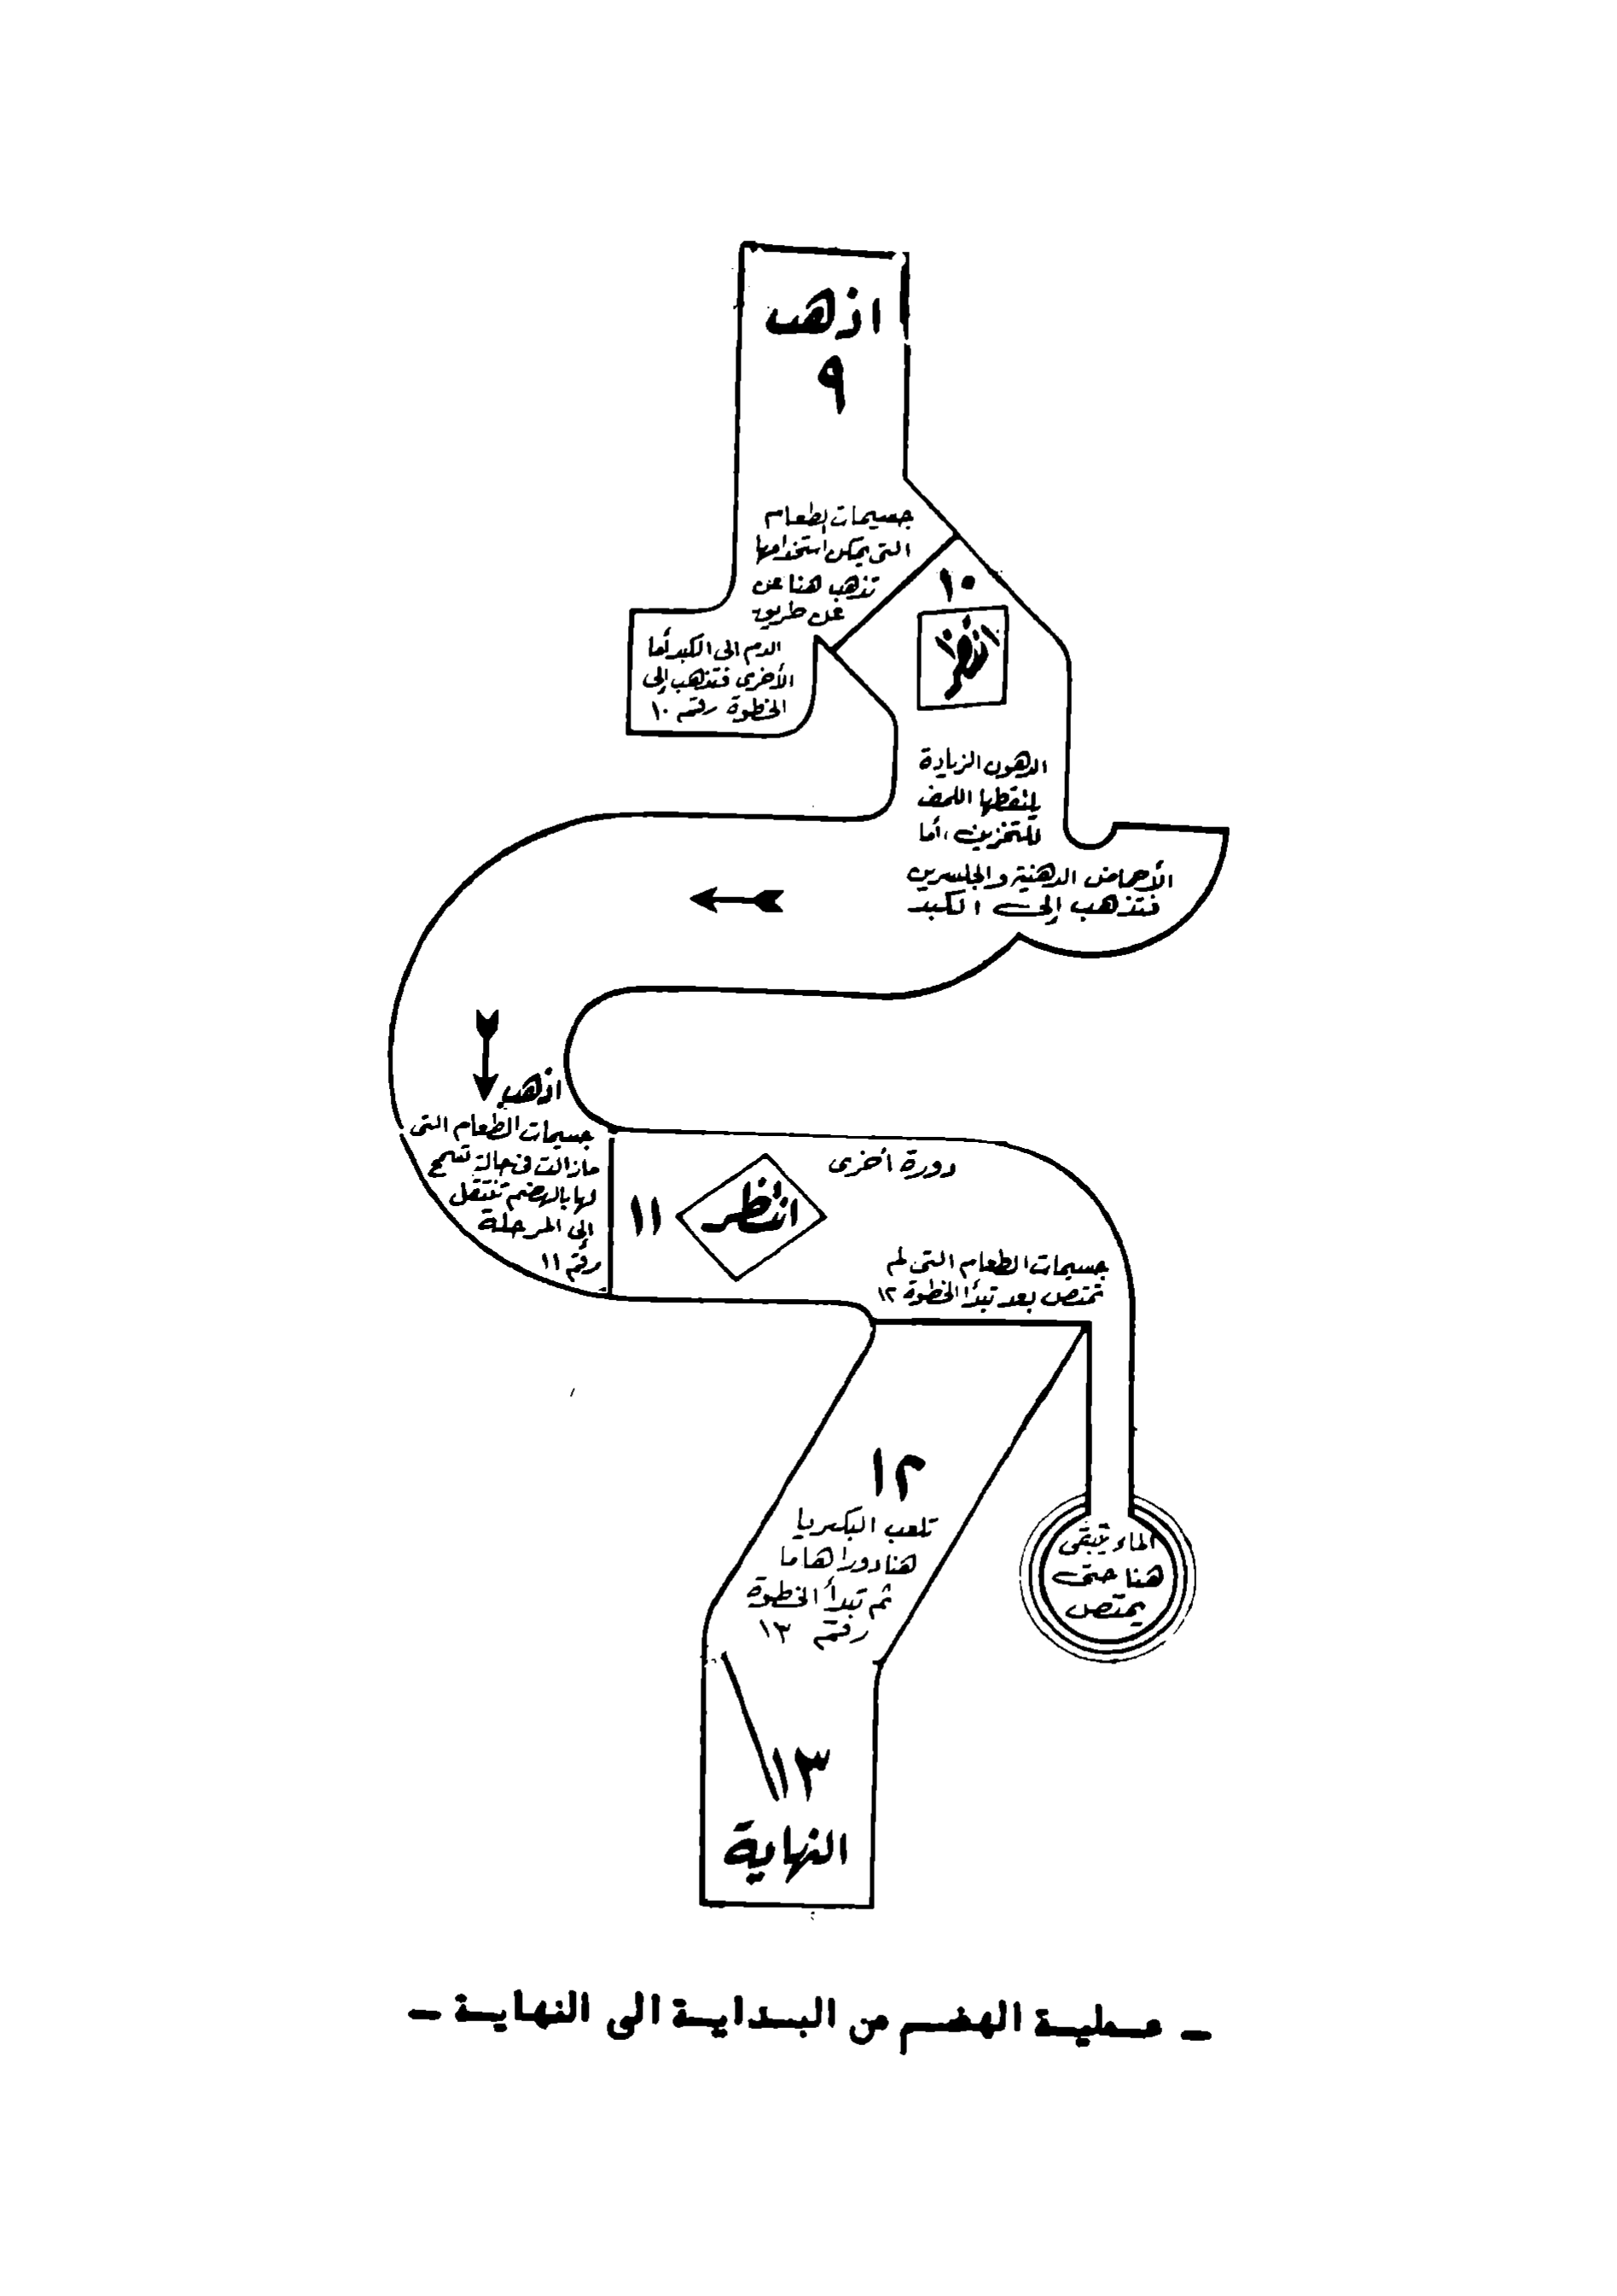 اذهب
٩
جسيمات الطعام
التى يمكن استخدامها
تذهب هنا عن
عن طريق
الدم الى الكبد أما
الأخرى فتذهب إلى
الخطوة رقم ١٠
١٠
انتظر
الدهون الزيادة
يلتقطها اللمف
للتخزين، أما
الأحماض الدهنية والجلسرين
فتذهب إلى الكبد
اذهب
جسيمات الطعام التى
مازالت فى حالة تسمح
لها بالهضم تنتقل
إلى المرحلة
رقم ١١
١١
انتظر
دورة أخرى
جسيمات الطعام التى لم
تمتص بعد تبدأ الخطوة ١٢
١٢
تلعب البكتريا
هنا دورا هاما
ثم تبدأ الخطوة
رقم ١٣
الماء يتبقى
هنا حتى
يمتص
١٣
النهاية
- عملية الهضم من البداية الى النهاية -